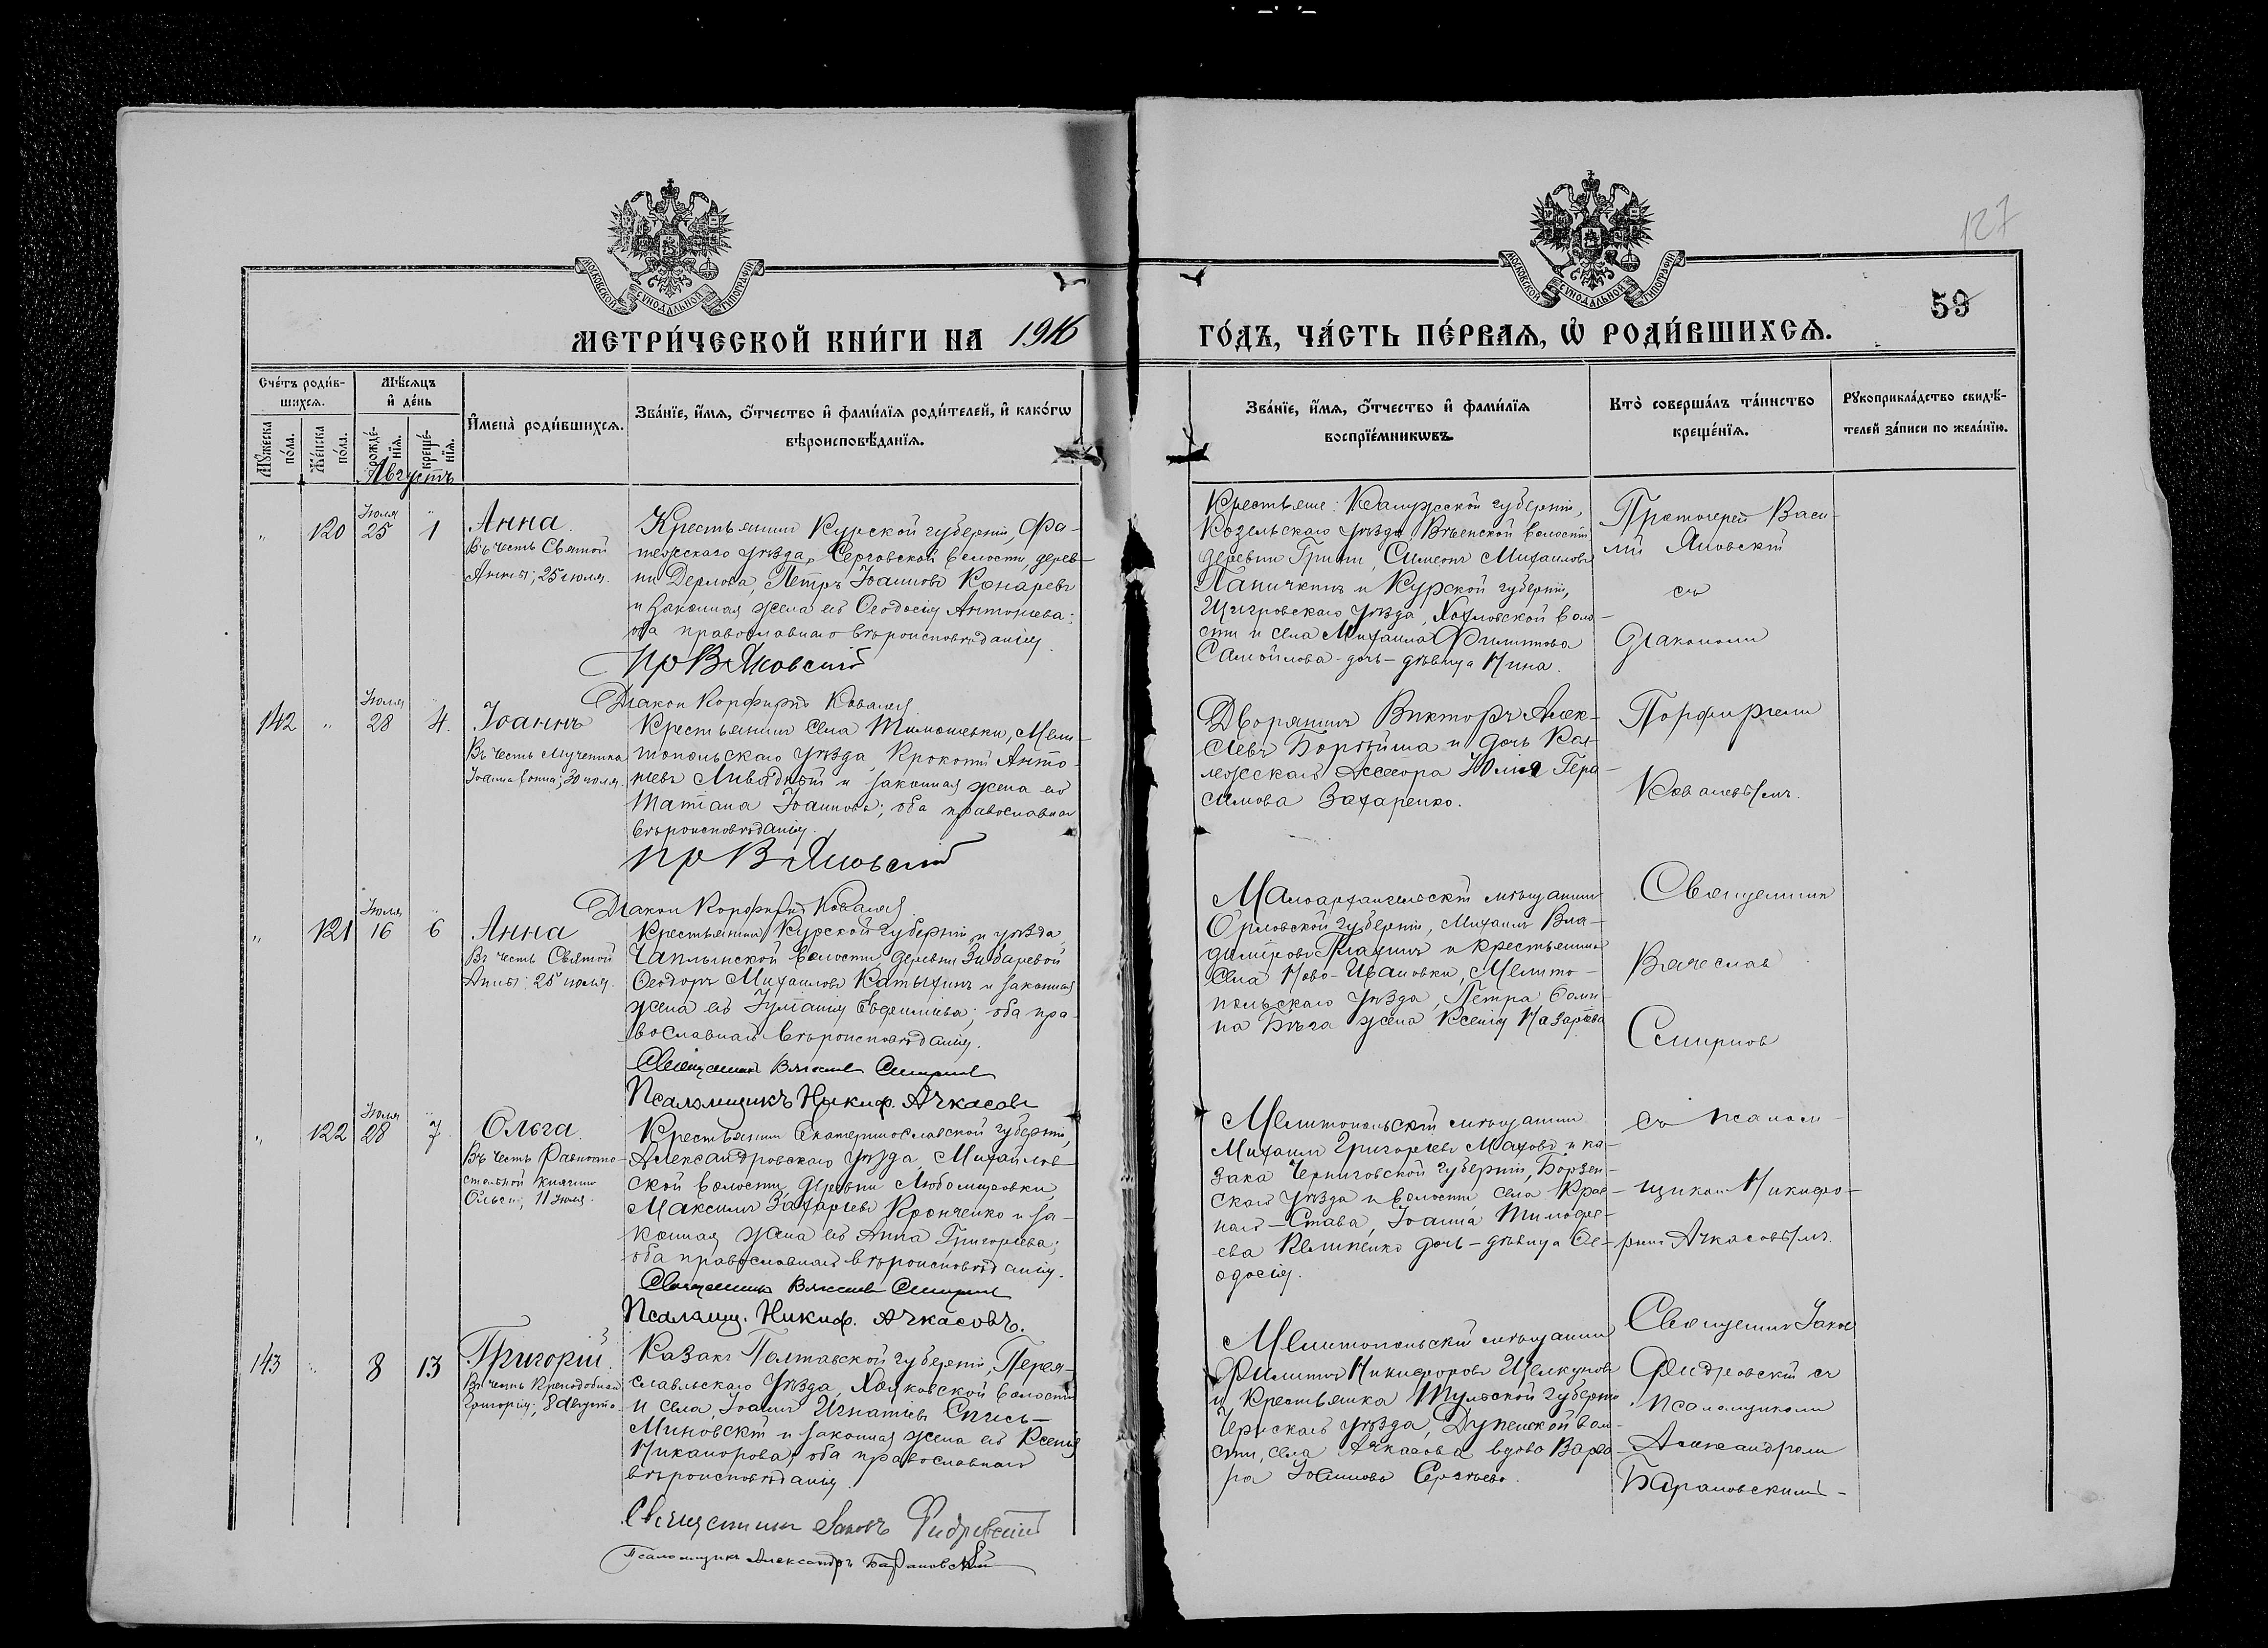 127
59
МОСКОВСКОЙ СѴНОДАЛЬНОЙ ТИПОГРАФІИ
МОСКОВСКОЙ СѴНОДАЛЬНОЙ ТИПОГРАФІИ
МЕТРИ́ЧЕСКОЙ КНИ́ГИ НА 1916
ГО́ДЪ, ЧА́СТЬ ПЕ́РВАѦ, Ѡ РОДИ́ВШИХСѦ.
Сче́тъ роди́в-
шихсѧ.
Мꙋ́жеска
по́ла.
Же́нска
по́ла.
Мѣ́сѧцъ
и де́нь
рожде́-
нїѧ.
креще́-
нїѧ.
Имена̀ роди́вшихсѧ.
Зва́нїе, и́мѧ, ѻ́тчество и фами́лїѧ роди́телей, и како́гѡ
вѣроисповѣ́данїѧ.
Зва́нїе, и́мѧ, ѻ́тчество и фами́лїѧ
воспрїе́мникѡвъ.
Кто̀ соверша́лъ та́инство
креще́нїѧ.
Рꙋкоприкла́дство свидѣ́-
телей за́писи по жела́нїю.
Августъ
„ 120 Іюля 25 1
Анна.
Въ честь Святой
Анны; 25 іюля.
Крестьянинъ Курской губерніи, Фа-
тежскаго уѣзда, Серговской волости, дерев-
ни Дерлова, Петръ Іоанновъ Конаревъ
и законная жена его Ѳеодосія Антоніева:
оба православнаго вѣроисповѣданія.
Пр В Яновскій
Діакон Порфирій Ковалев
Крестьяне: Калужской губерніи,
Козельскаго уѣзда волости
деревни Симеонъ Михаиловъ
Папичкинъ и Курской губерніи,
Щигровскаго уѣзда, Хохловской воло-
сти и села Михаила Филиппова
Самойлова - дочь - дѣвица Нина.
Протоіерей Васи-
лій Яновскій
съ
Діакономъ
142 „ Іюля 28 4.
Іоаннъ
Въ честь Мученика
Іоанна воина; 30 іюля.
Крестьянинъ села Тимошевки, Мели-
топольскаго уѣзда, Прокопій Анто-
ніевъ Ливадный и законная жена его
Татіана Іоаннова; оба православнаго
вѣроисповѣданія.
Пр В Яновскій
Діакон Порфирій Ковалев
Дворянинъ Викторъ Алек-
сіевъ и дочь Кол-
лежскаго Ассесора Юлія Гера-
симова Захаренко.
Порфиріемъ
Ковалевымъ.
„ 121 Іюля 16 6
Анна
Въ честь Святой
Анны: 25 іюля.
Крестьянинъ Курской губерніи и уѣзда
Чаплынской волости, деревни Зибаревой
Ѳеодоръ Михаиловъ Катыхинъ и законная
жена его Іуліанія Евфиміева; оба пра-
вославнаго вѣроисповѣданія.
Священникъ Вячеслав Смирнов
Псаломщикъ Никиф. Ачкасовъ
Малоархангельскій мѣщанинъ
Орловской губерніи, Михаилъ Вла-
диміровъ и крестьянина
села Ново-Ивановки, Мелито-
польскаго уѣзда, Петра
на Бѣга жена Ксенія Назаріева
Священник
Вячеслав
Смирнов
„ 122 Іюля 28 7
Ольга.
Въ честь Равноапо-
стольной княгини
Ольги; 11 іюля.
Крестьянинъ Екатеринославской губерніи,
Александровскаго уѣзда, Михайлов-
ской волости, деревни Любомировки,
Максимъ Захаріевъ Кронченко и за-
конная жена его Анна Григоріева;
оба православнаго вѣроисповѣданія.
Священникъ Вячеслав Смирнов
Псаломщ. Никиф. Ачкасовъ.
Мелитопольскій мѣщанинъ
Михаилъ Григоріевъ Маховъ и ка-
зака Черниговской губерніи, Борзен-
скаго уѣзда и волости, села Крас-
наго-Става, Іоанна Тимофе-
ева дочь - дѣвица Ѳе-
одосія.
съ псалом-
щикомъ Никифо-
ромъ Ачкасовымъ.
143 „ 8 13
Григорій.
Въ честь Преподобнаго
Григорія; 8 Августа.
Казакъ Полтавской губерніи, Перея-
славльскаго уѣзда, Хоцковской волости
и села, Іоаннъ Игнатіевъ Спись-
Миновскій и законная жена его Ксенія
Никанорова; оба православнаго
вѣроисповѣданія.
Священникъ Іаковъ
Псаломщикъ Александръ Барановскій
Мелитопольскій мѣщанинъ
Филиппъ Никифоровъ Щелкуновъ
и крестьянка Тульской губерніи
Чернскаго уѣзда, воло-
сти, села Ачкасова вдова Варва-
ра Іоаннова Сергѣева.
Священникъ Іаков
съ
псаломщикомъ
Александромъ
Барановскимъ -